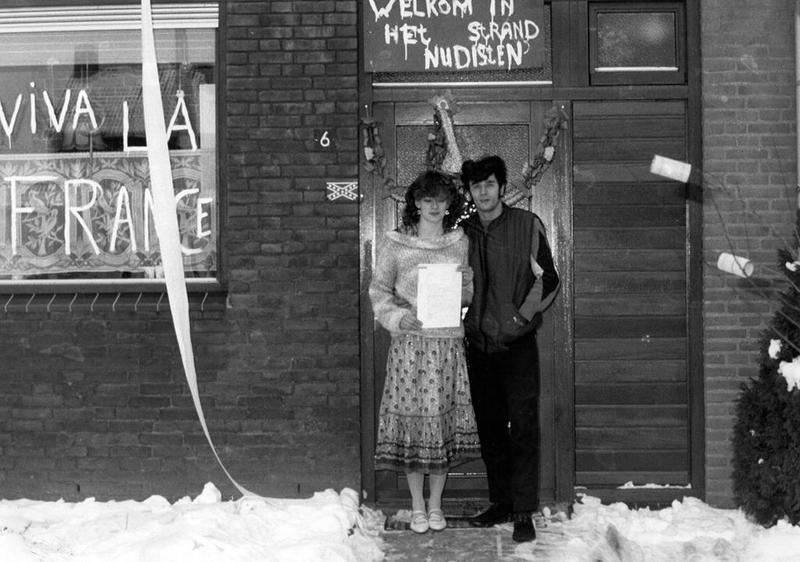 WELKOM IN
HET STRAND
NUDISTEN
VIVA LA
FRANCE
6